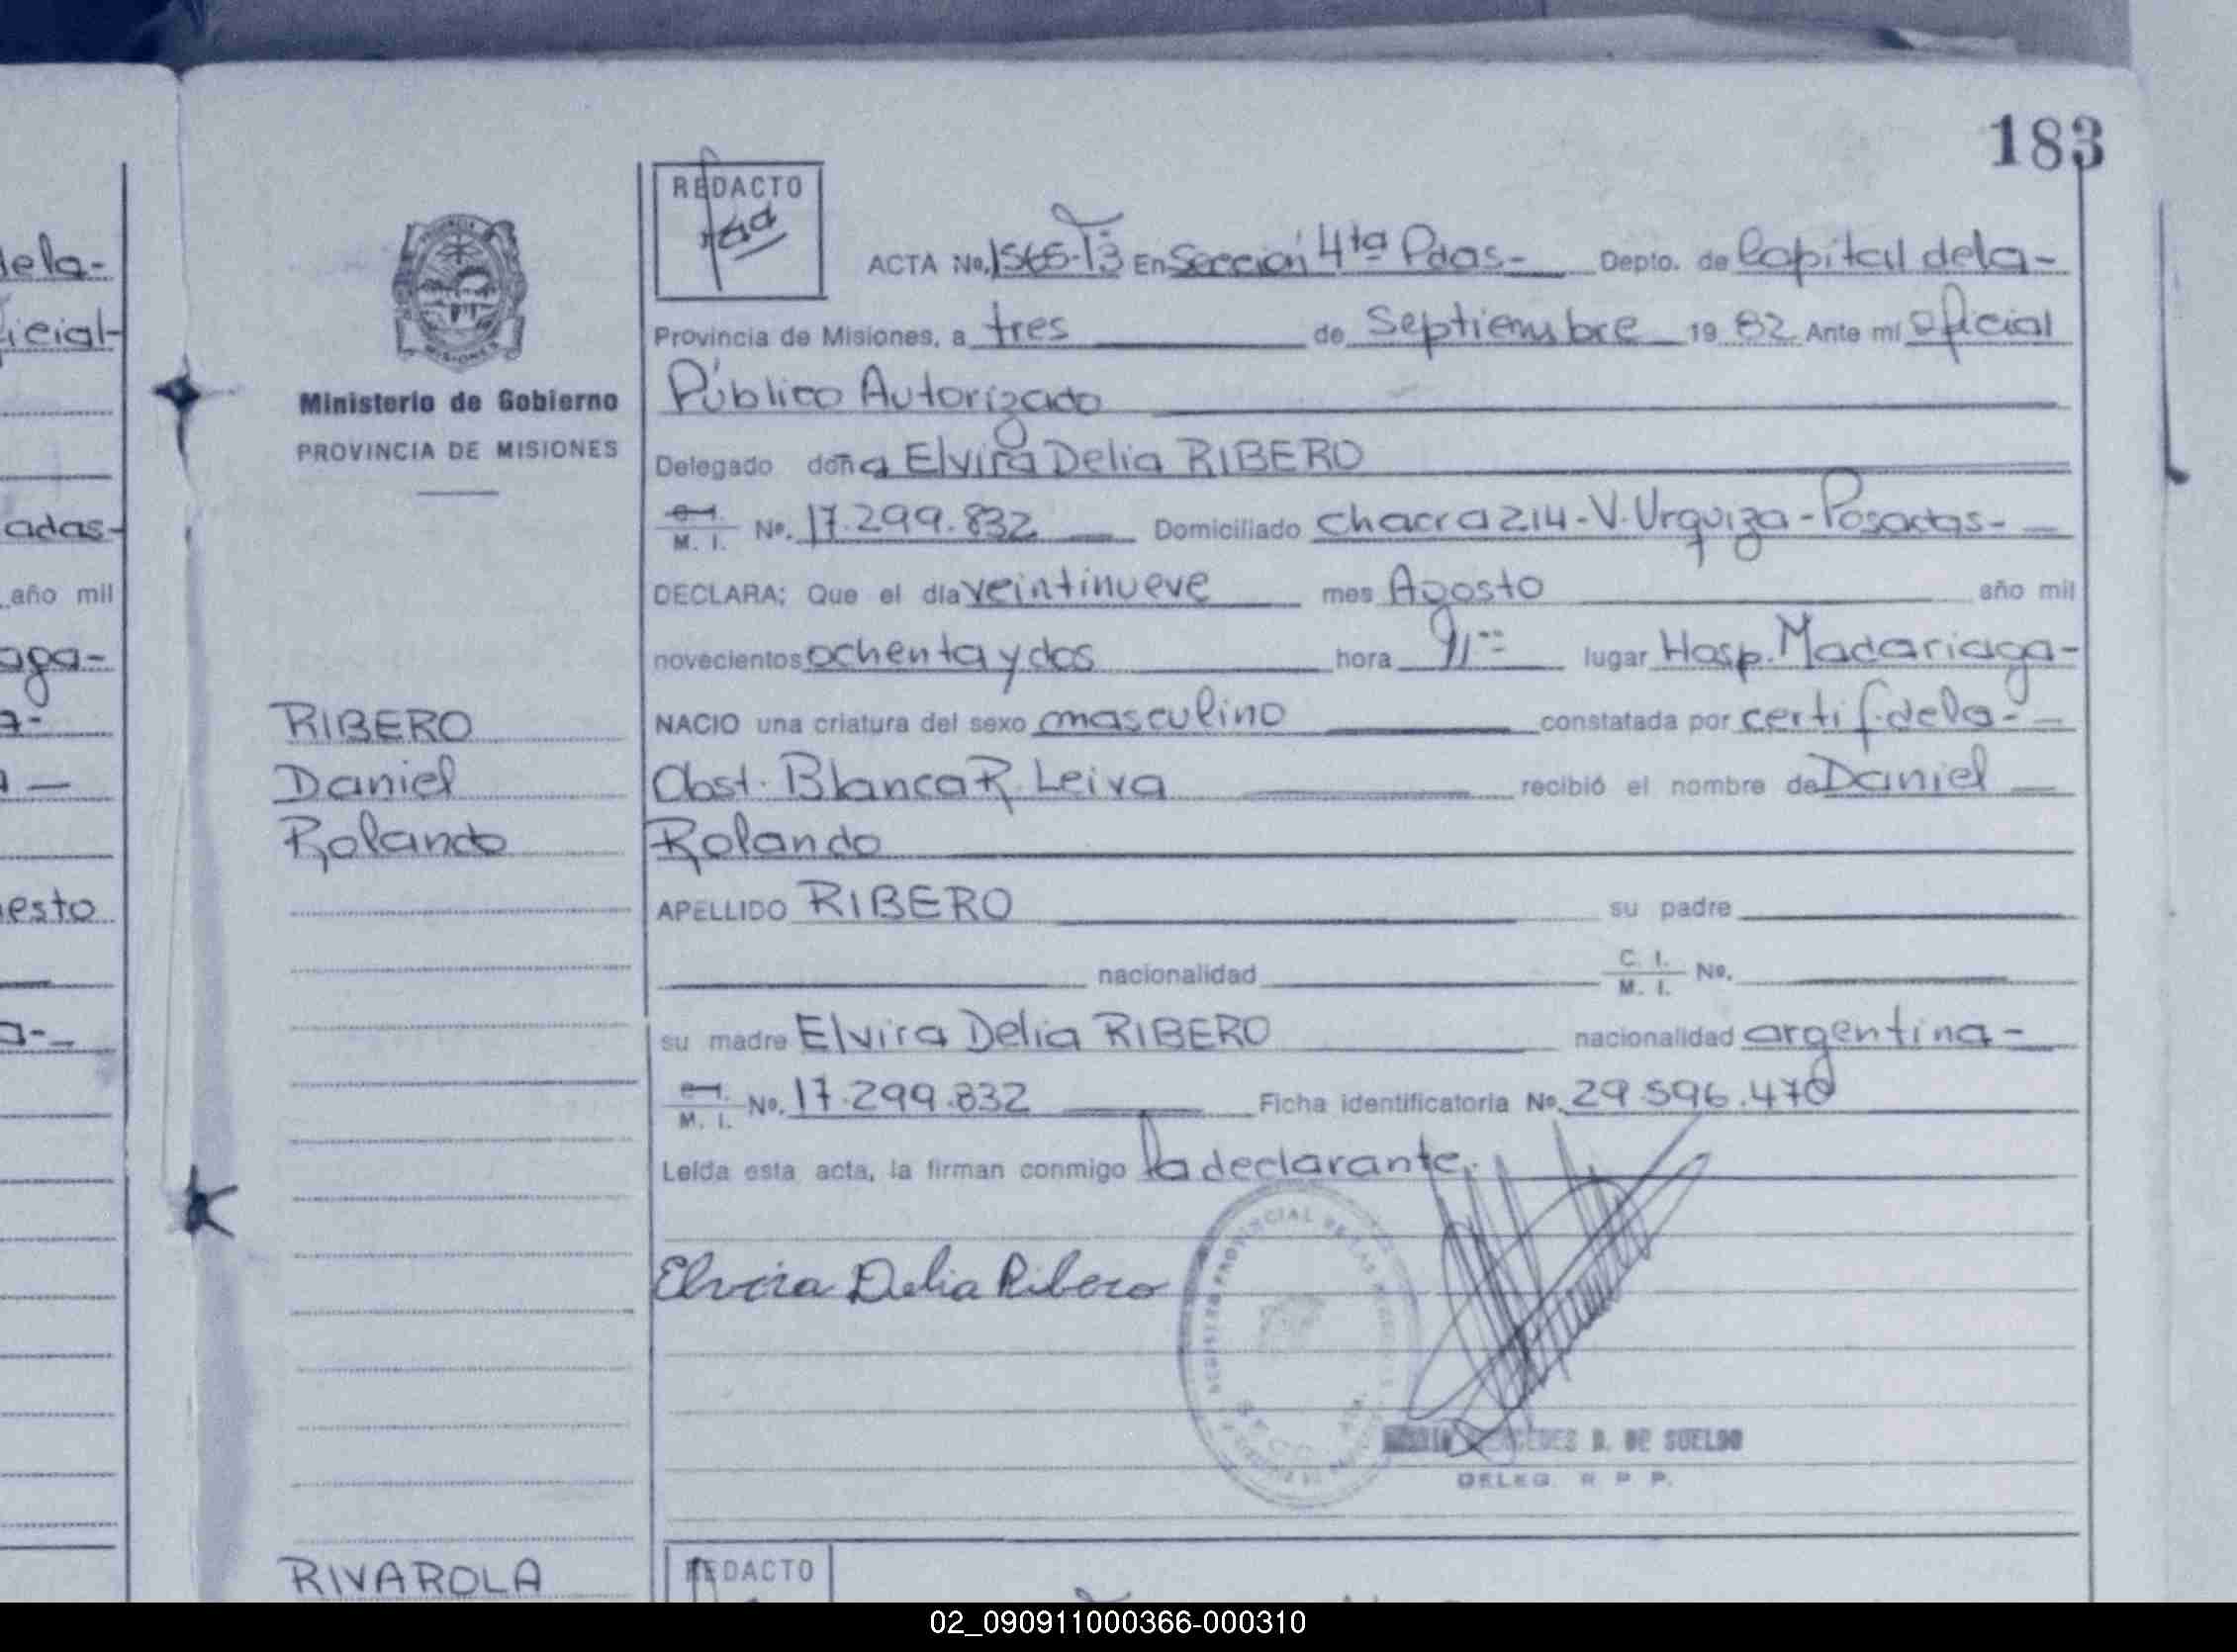 183
REDACTO
ACTA No. 1565-T3 En Sección 4ta Pdas- Depto. de Capital dela-
Provincia de Misiones, a tres de Septiembre 19 82 Ante mí Oficial
Público Autorizado
Delegado doña Elvira Delia RIBERO
M. I. No. 17.299.832 Domiciliado chacra 214-V.Urquiza-Posadas-
DECLARA; Que el día veintinueve mes Agosto año mil
novecientos ochenta y dos hora lugar Hosp. Madariaga-
NACIO una criatura del sexo masculino constatada por certif. dela-
Obst. Blanca R. Leiva recibió el nombre de Daniel
Rolando
APELLIDO RIBERO su padre
nacionalidad C. I. M. I. No.
su madre Elvira Delia RIBERO nacionalidad argentina-
M. I. No. 17.299.832 Ficha identificatoria No. 29.596.470
Leída esta acta, la firman conmigo la declarante.
Elvira Delia Ribero
MERCEDES B. DE SUELDO
DELEG. R P P.
REDACTO
Ministerio de Gobierno
PROVINCIA DE MISIONES
RIBERO
Daniel
Rolando
RIVAROLA
dela-
icial-
adas-
año mil
aga-
esto
02_090911000366-000310